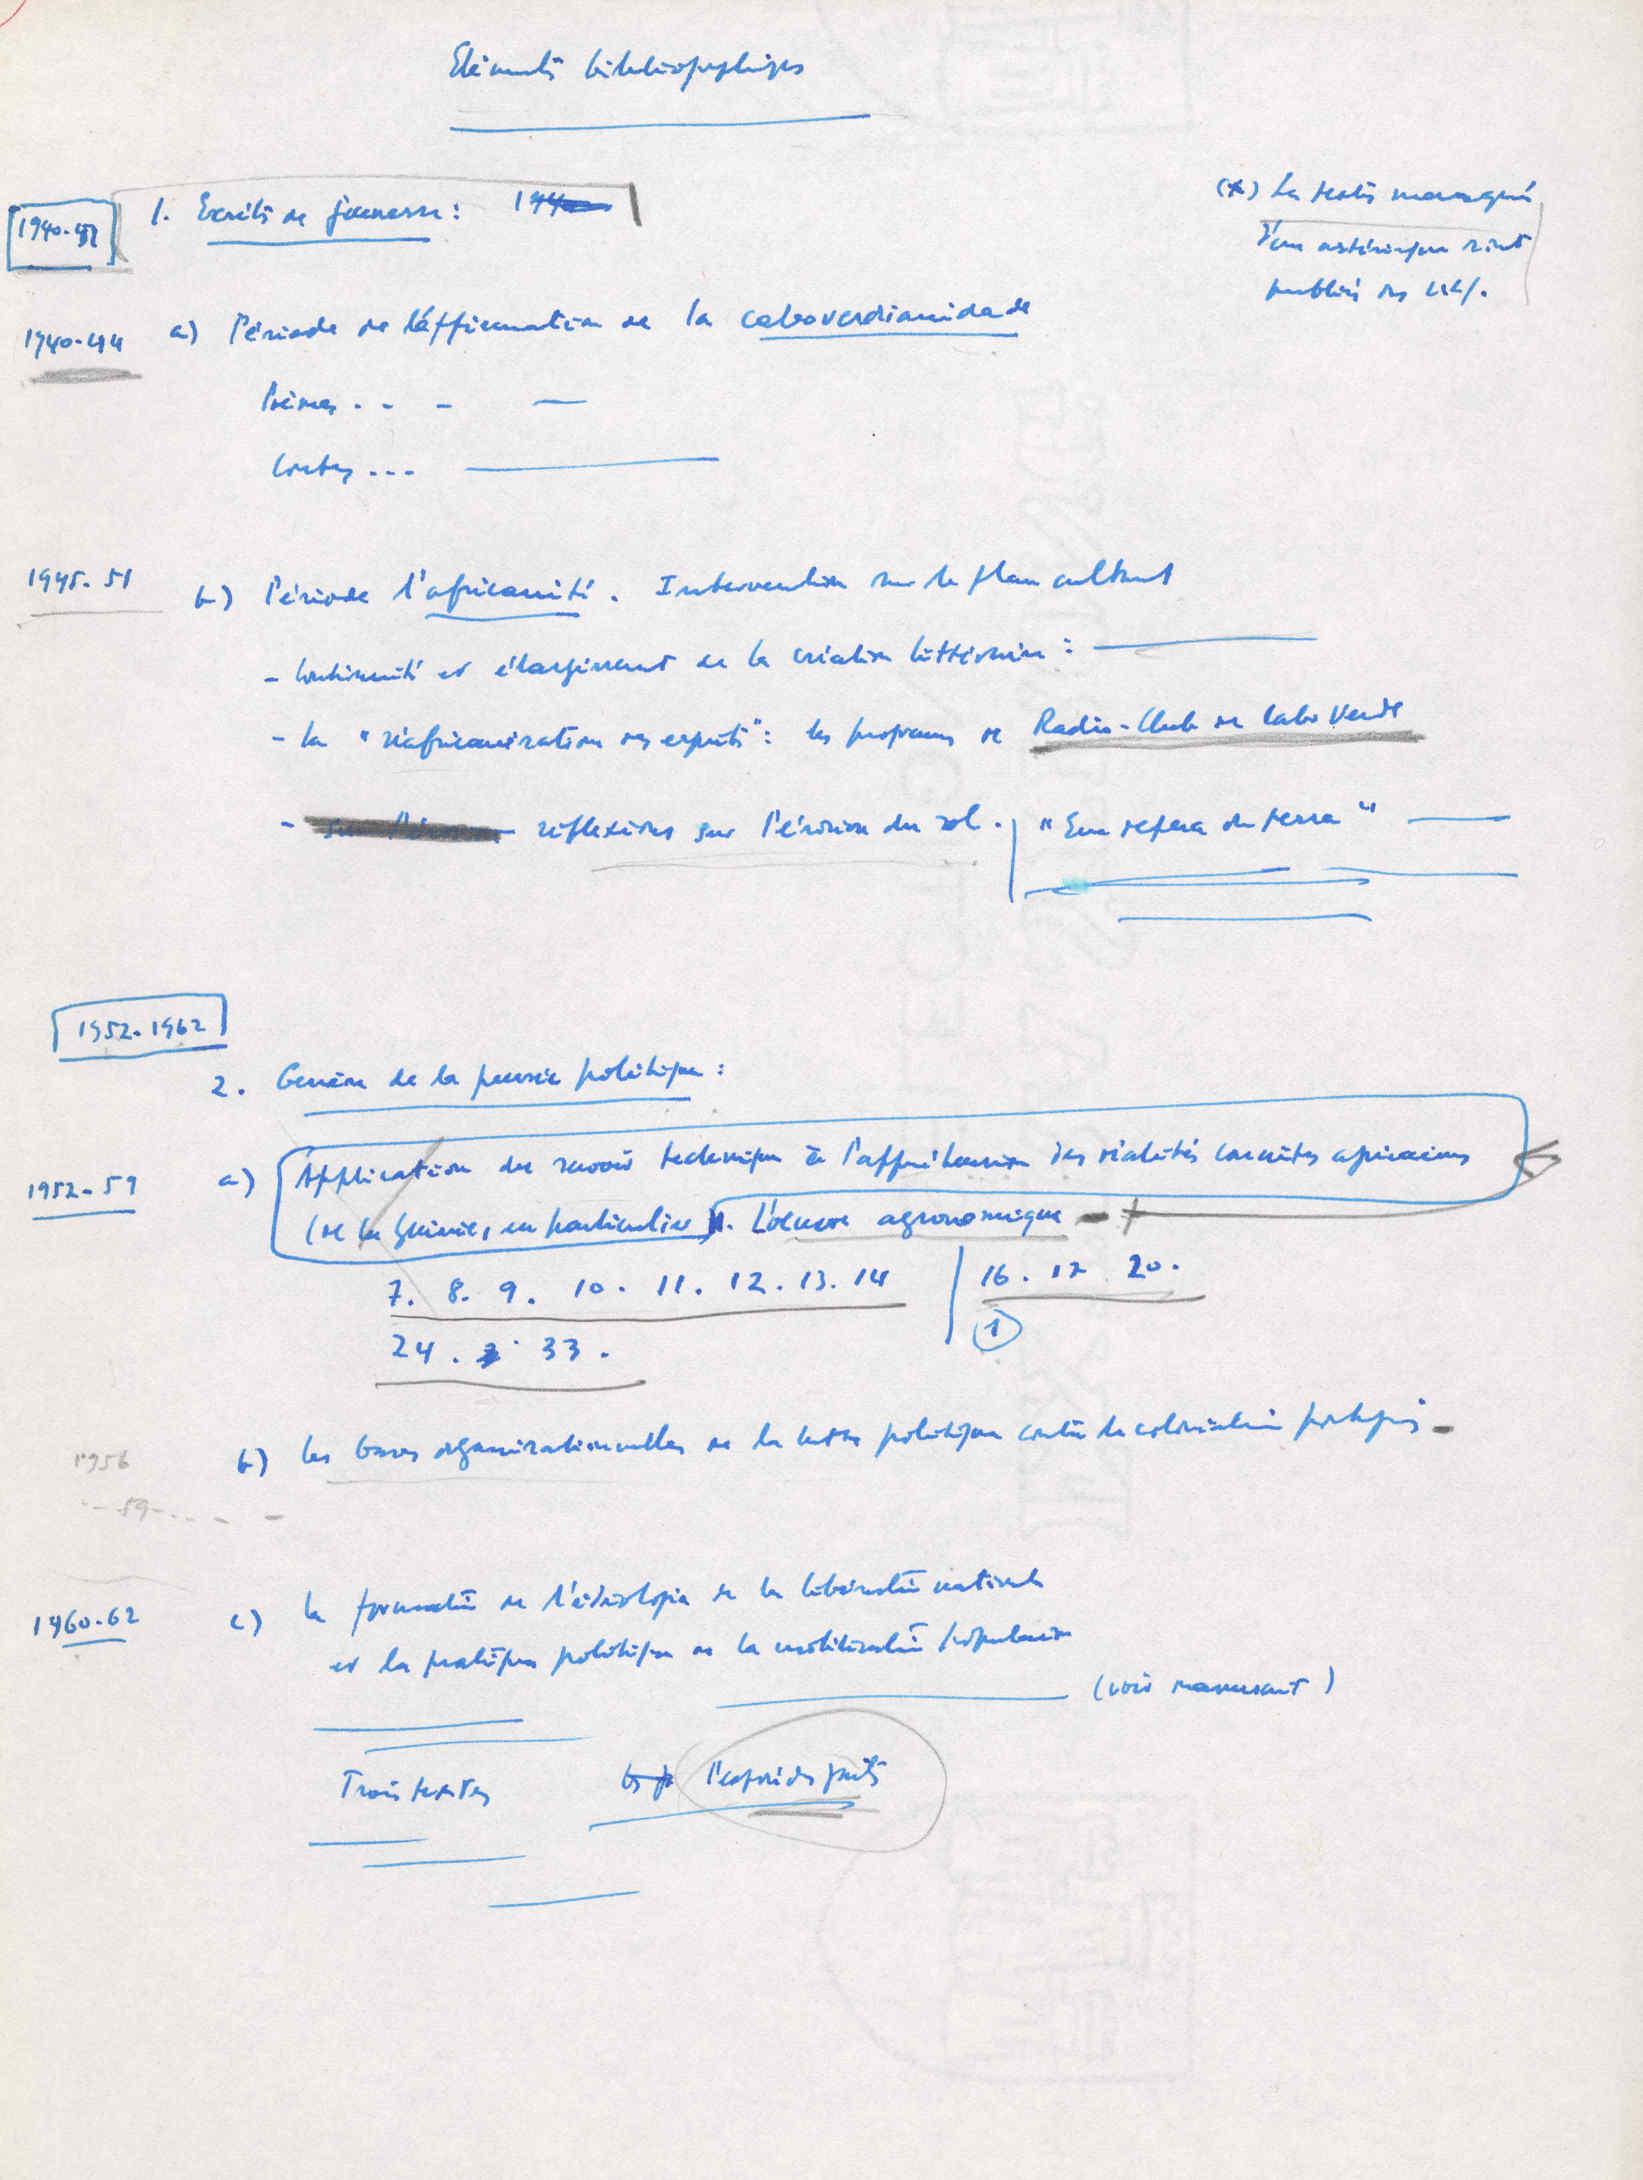 Eléments bibliographiques
(*) Les textes marqués
d'un astérisque sont
publiés ds
1940-
1. Ecrits de jeunesse :
1940-44 a) Période de l'affirmation de la caboverdianidade
Poèmes . - -
Contes ...
1945-51 b) Période l'africanité. Intervention sur le plan culturel
- Continuité et élargissement de la création littéraire :
- La "réafricanisation des esprits" : les programmes de Radio-Club de Cabo Verde
- réflexions sur l'érosion du sol. "Em defesa da terra"
1952-1962
2. Genèse de la pensée politique :
1952-59 a) Application du savoir technique à l'appréhension des réalités concrètes africaines
(de la Guinée, en particulier). L'oeuvre agronomique
7. 8. 9. 10. 11. 12. 13. 14 16. 17 20.
1
24. 33.
1956 b) Les bases organisationnelles de la lutte politique contre le colonialisme portugais
- 59 - . . -
1960-62 c) La formation de l'idéologie de la libération nationale
et la pratique politique de la mobilisation populaire
(voir manuscrit)
Trois textes